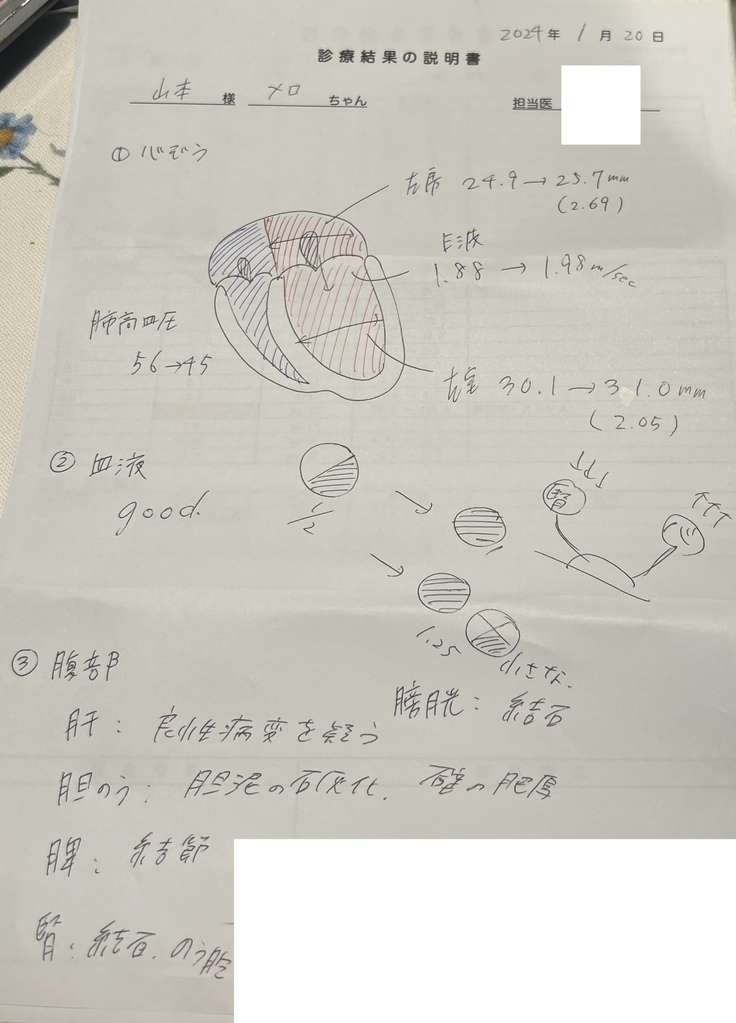 2024年 1月 20日
診療結果の説明書
山本 様 メロ ちゃん 担当医
① 心ぞう
左房 24.9→25.7mm
(2.69)
E波
1.88 → 1.98m/sec
肺高血圧
56→45
左室 30.1→31.0mm
(2.05)
② 血液
good.
1/2
腎
↓↓↓
心
↑↑↑
1.25
小さな.
③ 腹部
肝: 良性病変を疑う
膀胱: 結石
胆のう: 胆泥の石灰化. 壁の肥厚
脾: 結節
腎: 結石. のう胞